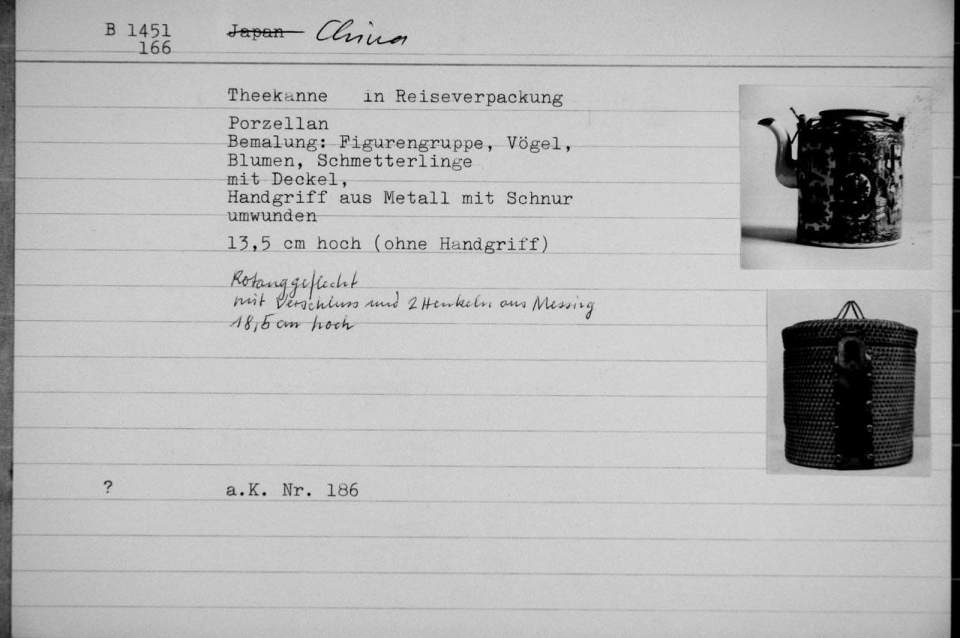 B 1451 Japan China
166
Theekanne in Reiseverpackung
Porzellan
Bemalung: Figurengruppe, Vögel,
Blumen, Schmetterlinge
mit Deckel,
Handgriff aus Metall mit Schnur
umwunden
13,5 cm hoch (ohne Handgriff)
Rotanggeflecht
mit Verschluss und 2 Henkeln aus Messing
18,5 cm hoch
? a.K. Nr. 186